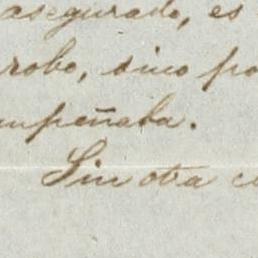 asegurado, es
robo, sino po
empeñaba.
Sin otra co